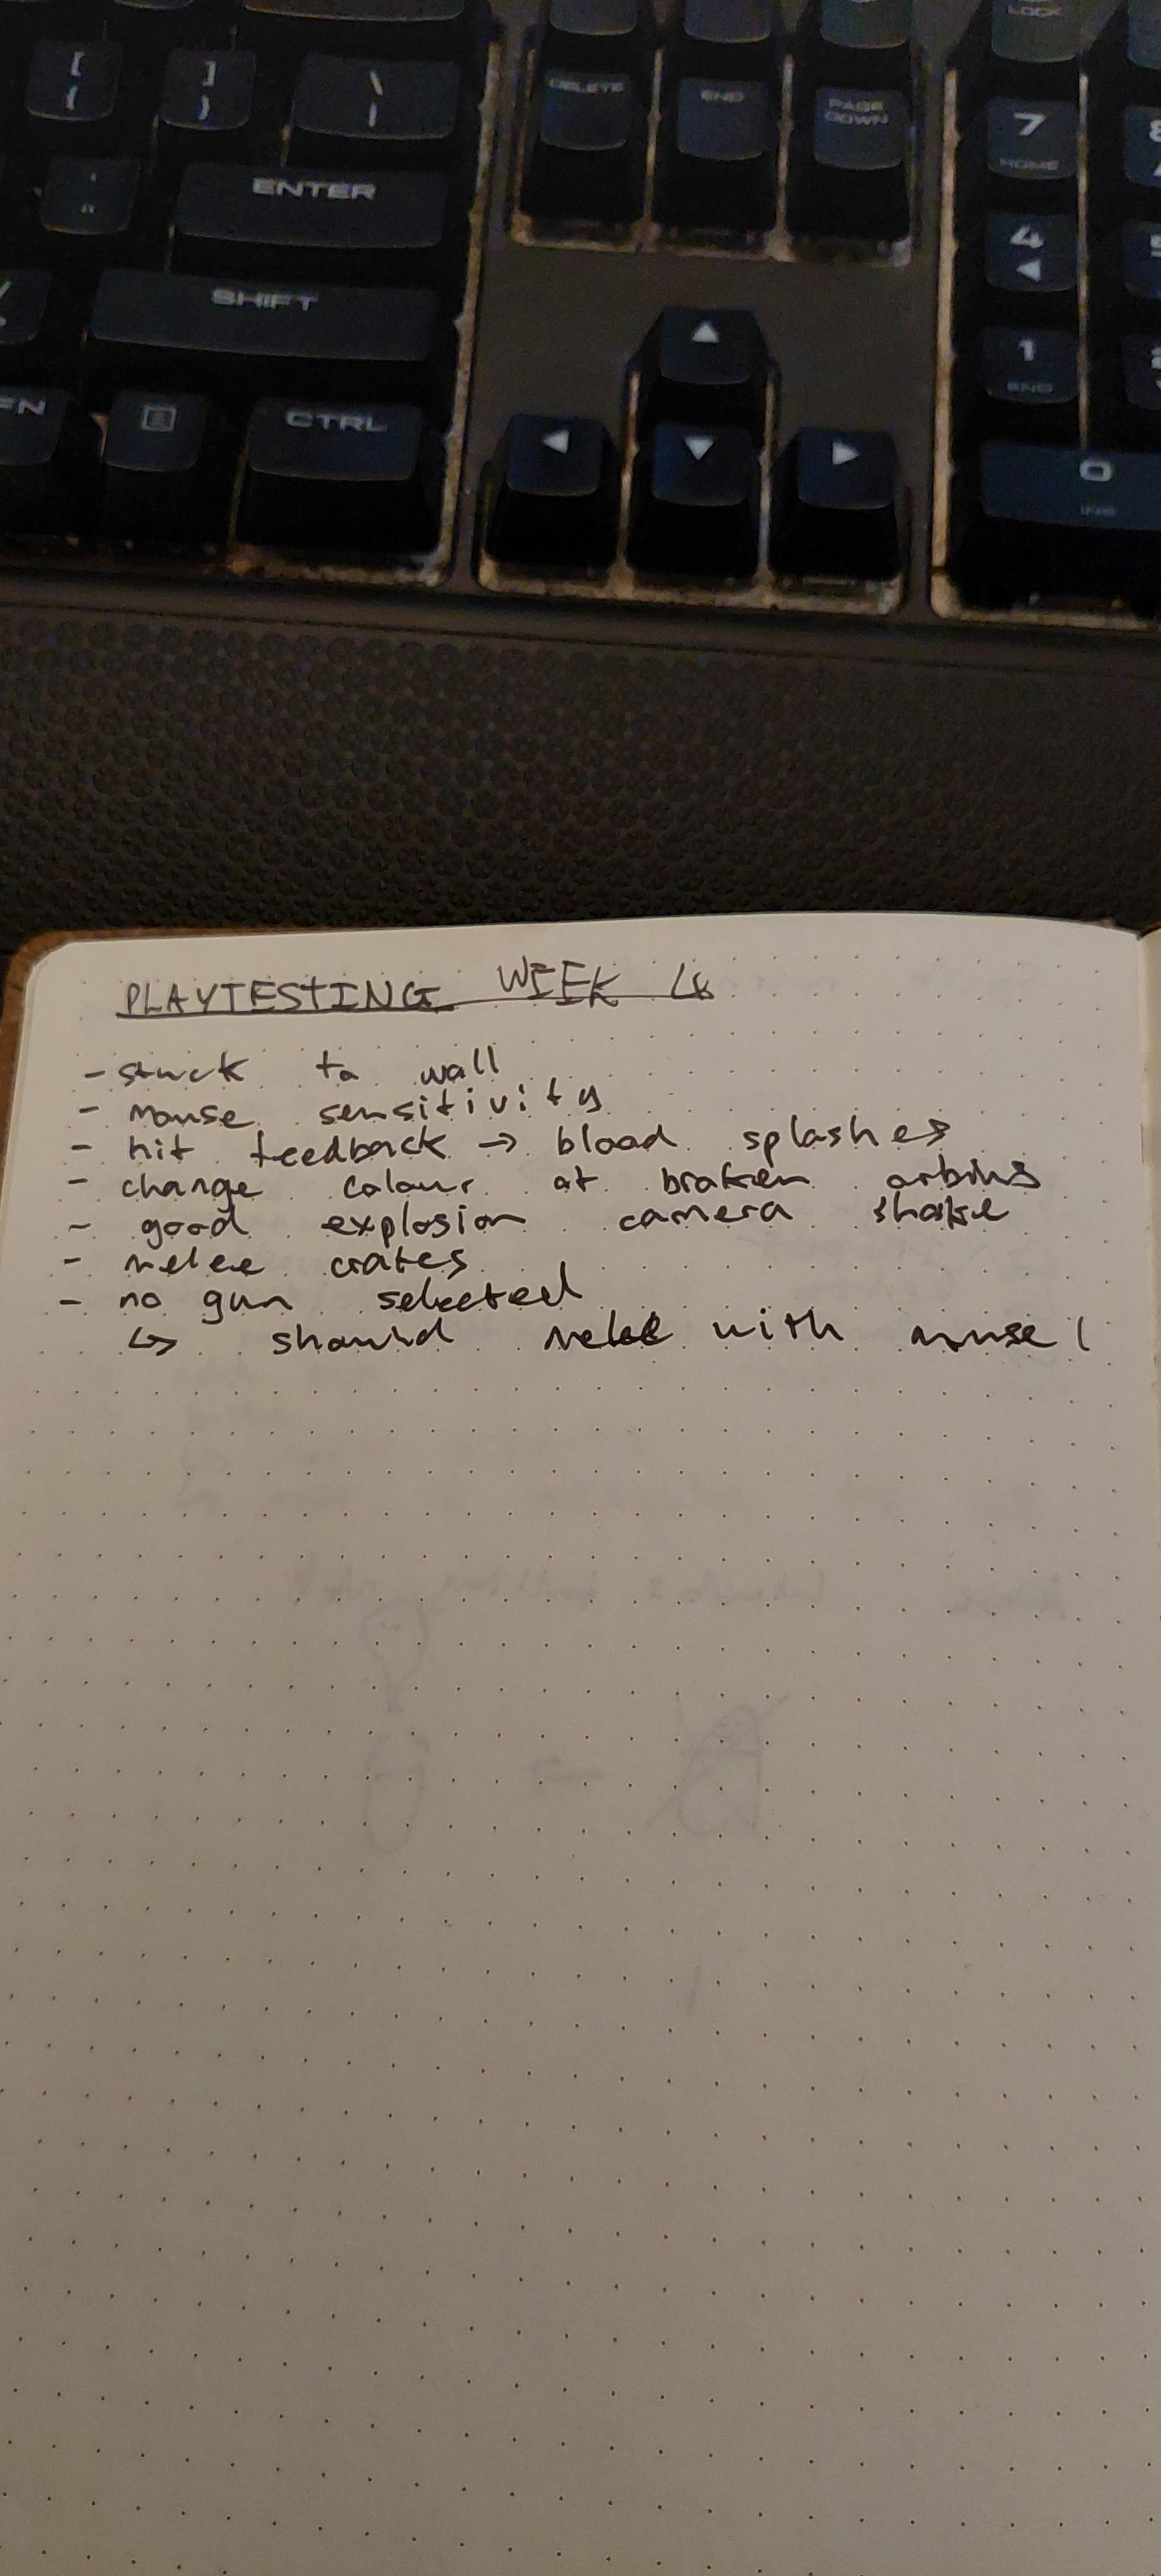 [ {
] }
\ |
DELETE
END
PAGE DOWN
LOCK
7
HOME
8
' "
ENTER
4
5
SHIFT
1
END
2
FN
CTRL
0
INS
PLAYTESTING WEEK
- stuck to wall
- mouse sensitivity
- hit feedback → blood splashes
- change colour of broken
- good explosion camera shake
- melee crates
- no gun selected
↳ should melee with mouse 1